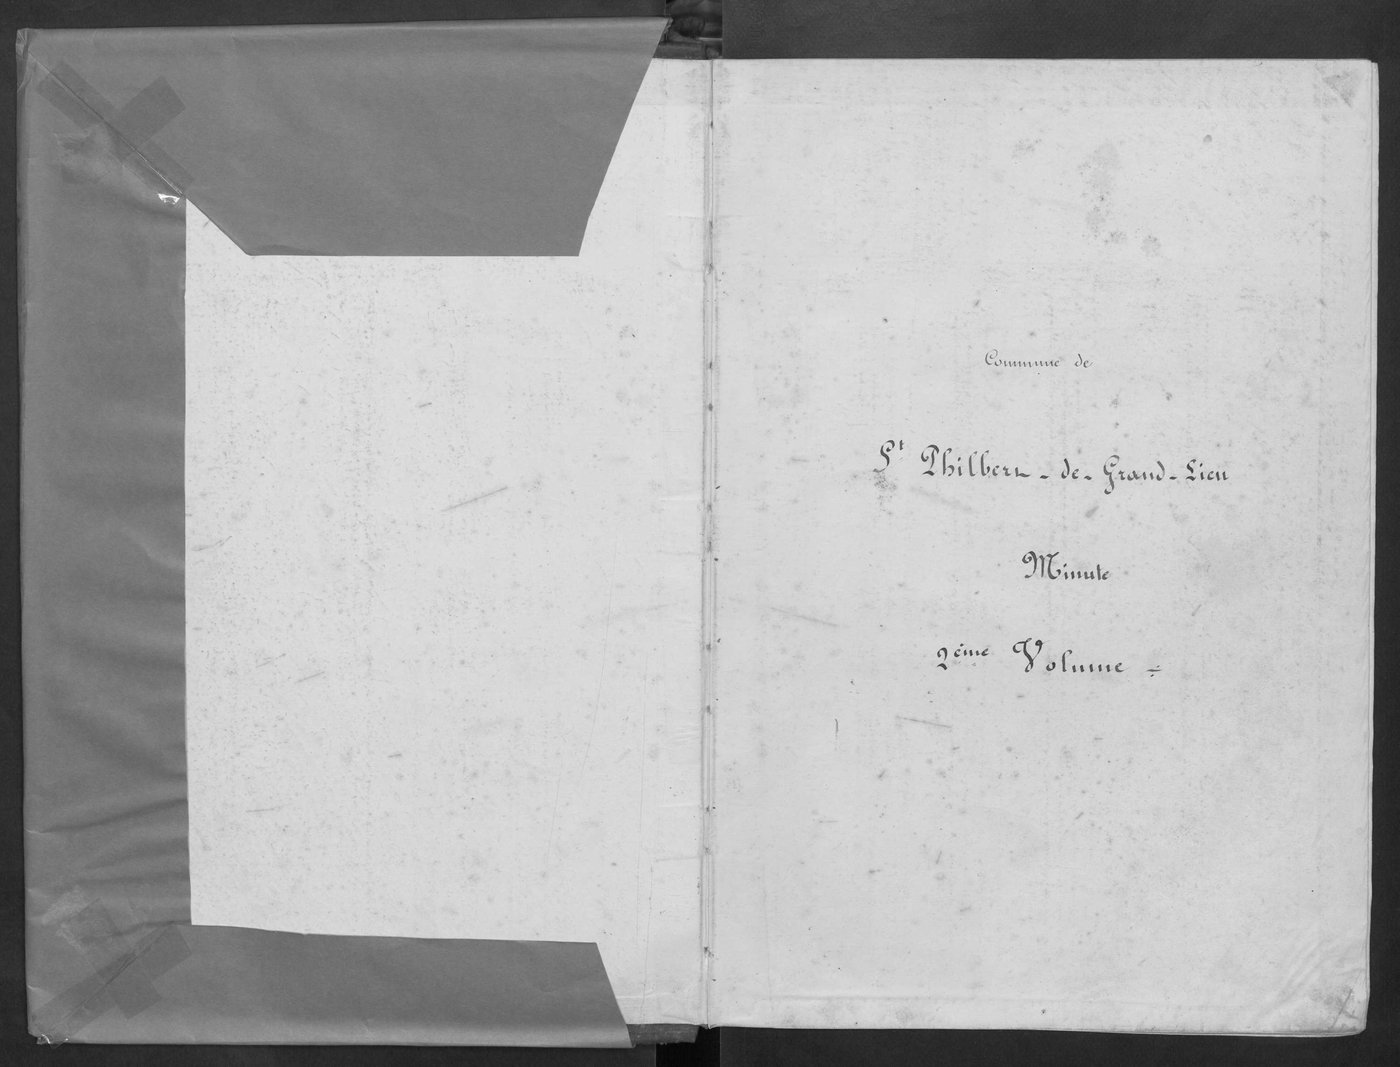 Commune de
St Philbert - de - Grand - Lieu
Minute
2ème Volume -